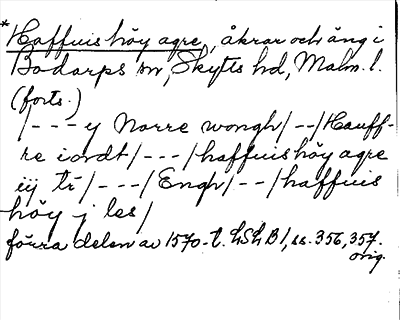 *Haffuis höy agre, åkrar och äng i
Bodarps sn, Skytts hd, Malm. l.
(forts.)
/---y Norre wongh/--/Hauff-
re iordt/---/haffuis höy agre
iij tr/---/Engh/--/haffuis
höy j les/
förra delen av 1570-t. LSHB1, ss. 356, 357.
orig.